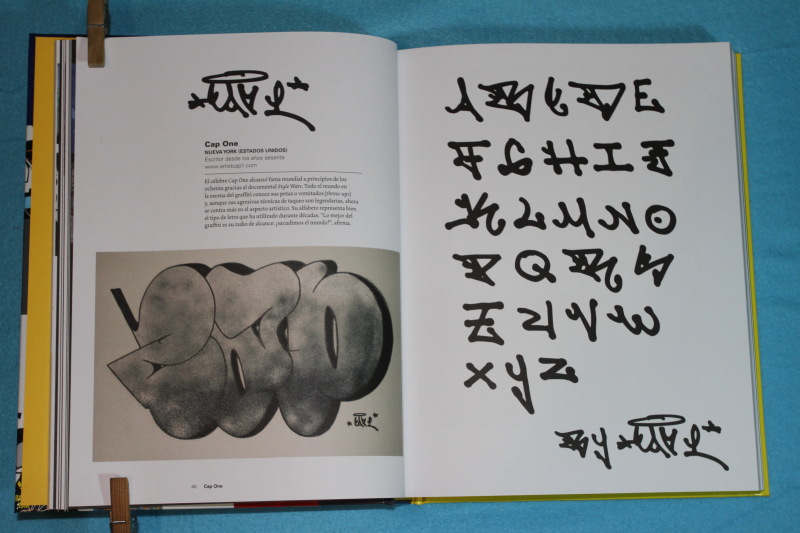 Cap One
NUEVA YORK (ESTADOS UNIDOS)
Escritor desde los años sesenta
www.artistcap1.com
El célebre Cap One alcanzó fama mundial a principios de los
ochenta gracias al documental Style Wars. Todo el mundo en
la escena del graffiti conoce sus potas o vomitados [throw-ups]
y, aunque sus agresivas técnicas de taqueo son legendarias, ahora
se centra más en el aspecto artístico. Su alfabeto representa bien
el tipo de letra que ha utilizado durante décadas. "Lo mejor del
graffiti es su radio de alcance: ¡sacudimos el mundo!", afirma.
CAP
Cap One
A B C D E
F G H I J
K L M N O
P Q R S
T U V W
X Y Z
BY